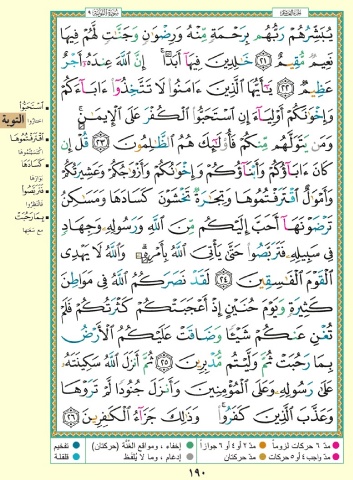 سُورَةُ التَّوْبَةِ ٩
الجُزْءُ العَاشِرُ
يُبَشِّرُهُمْ رَبُّهُم بِرَحْمَةٍ مِّنْهُ وَرِضْوَٰنٍ وَجَنَّٰتٍ لَّهُمْ فِيهَا
نَعِيمٌ مُّقِيمٌ ٢١ خَٰلِدِينَ فِيهَآ أَبَدًا ۚ إِنَّ ٱللَّهَ عِندَهُۥٓ أَجْرٌ
عَظِيمٌ ٢٢ يَٰٓأَيُّهَا ٱلَّذِينَ ءَامَنُوا۟ لَا تَتَّخِذُوٓا۟ ءَابَآءَكُمْ
وَإِخْوَٰنَكُمْ أَوْلِيَآءَ إِنِ ٱسْتَحَبُّوا۟ ٱلْكُفْرَ عَلَى ٱلْإِيمَٰنِ ۚ
وَمَن يَتَوَلَّهُم مِّنكُمْ فَأُو۟لَٰٓئِكَ هُمُ ٱلظَّٰلِمُونَ ٢٣ قُلْ إِن
كَانَ ءَابَآؤُكُمْ وَأَبْنَآؤُكُمْ وَإِخْوَٰنُكُمْ وَأَزْوَٰجُكُمْ وَعَشِيرَتُكُمْ
وَأَمْوَٰلٌ ٱقْتَرَفْتُمُوهَا وَتِجَٰرَةٌ تَخْشَوْنَ كَسَادَهَا وَمَسَٰكِنُ
تَرْضَوْنَهَآ أَحَبَّ إِلَيْكُم مِّنَ ٱللَّهِ وَرَسُولِهِۦ وَجِهَادٍ
فِى سَبِيلِهِۦ فَتَرَبَّصُوا۟ حَتَّىٰ يَأْتِىَ ٱللَّهُ بِأَمْرِهِۦ ۗ وَٱللَّهُ لَا يَهْدِى
ٱلْقَوْمَ ٱلْفَٰسِقِينَ ٢٤ لَقَدْ نَصَرَكُمُ ٱللَّهُ فِى مَوَاطِنَ
كَثِيرَةٍ ۙ وَيَوْمَ حُنَيْنٍ ۙ إِذْ أَعْجَبَتْكُمْ كَثْرَتُكُمْ فَلَمْ
تُغْنِ عَنكُمْ شَيْـًٔا وَضَاقَتْ عَلَيْكُمُ ٱلْأَرْضُ
بِمَا رَحُبَتْ ثُمَّ وَلَّيْتُم مُّدْبِرِينَ ٢٥ ثُمَّ أَنزَلَ ٱللَّهُ سَكِينَتَهُۥ
عَلَىٰ رَسُولِهِۦ وَعَلَى ٱلْمُؤْمِنِينَ وَأَنزَلَ جُنُودًا لَّمْ تَرَوْهَا
وَعَذَّبَ ٱلَّذِينَ كَفَرُوا۟ ۚ وَذَٰلِكَ جَزَآءُ ٱلْكَٰفِرِينَ ٢٦
التوبة
اسْتَحَبُّوا
اختاروا
اقْتَرَفْتُمُوهَا
اكتسبتموها
كَسَادَهَا
بَوَارَهَا
فَتَرَبَّصُوا
فانتظروا
بِمَا رَحُبَتْ
مع سعتها
مدّ ٦ حركات لزوماً
مدّ ٢ أو ٤ أو ٦ جوازاً
إخفاء، ومواقع الغُنَّة (حركتان)
تفخيم
مدّ واجب ٤ أو ٥ حركات
مدّ حركتان
إدغام، وما لا يُلفَظ
قلقلة
١٩٠